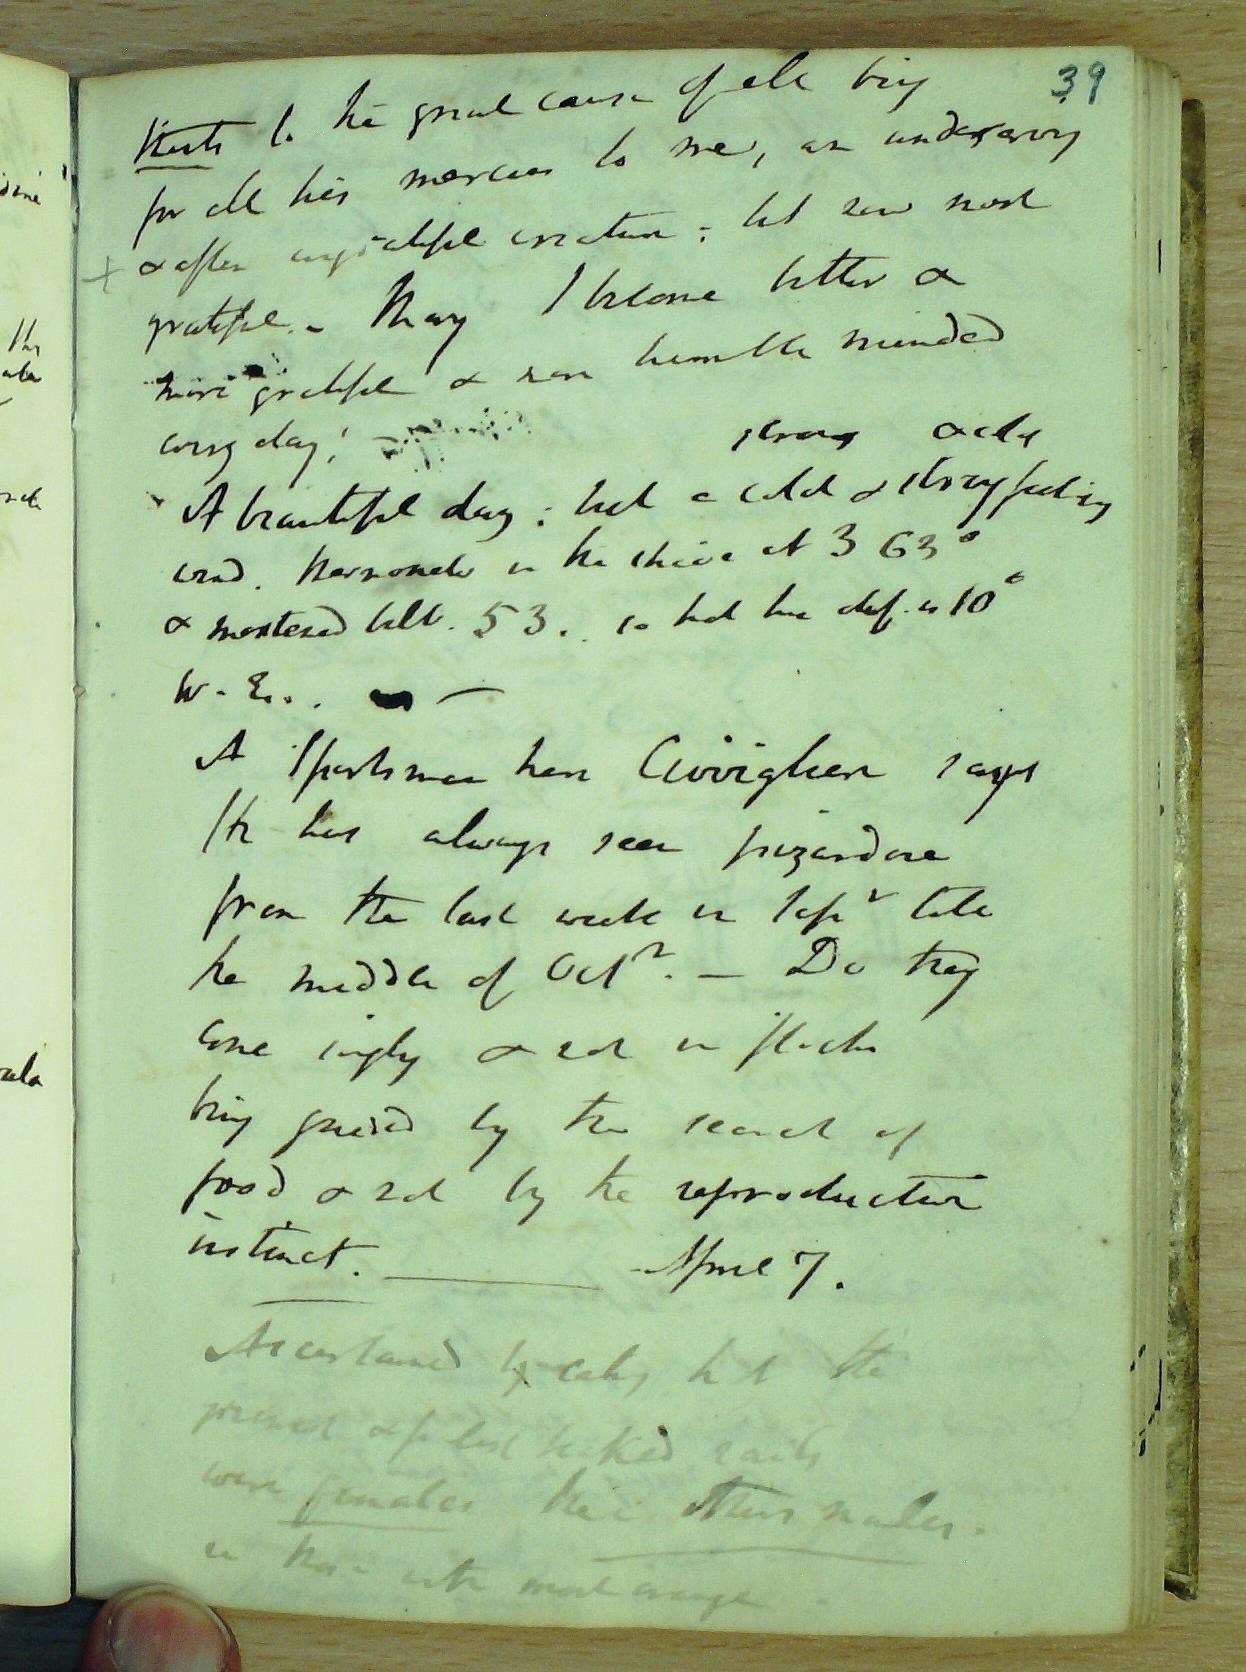 39
thanks to the great cause of all being
for all his mercies to me, an undeserving
& often ungrateful creature; but now most
grateful. - May I become better &
more grateful & more humble minded
every day! -
strong & cold
A beautiful day; but a cold & strong feeling
wind. Thermometer in the shade at 3 63°
& moistened bulb. 53. so that the dif. is 10°
W. E.. -
A Sportsman here says
He has always seen
from the last week in Sepr till
the middle of Octr. - Do they
come singly & not in flocks
being guided by the search of
food & not by the reproductive
instinct. April 7.
Ascertained by cutting that the
were females the others males.
in those with most orange